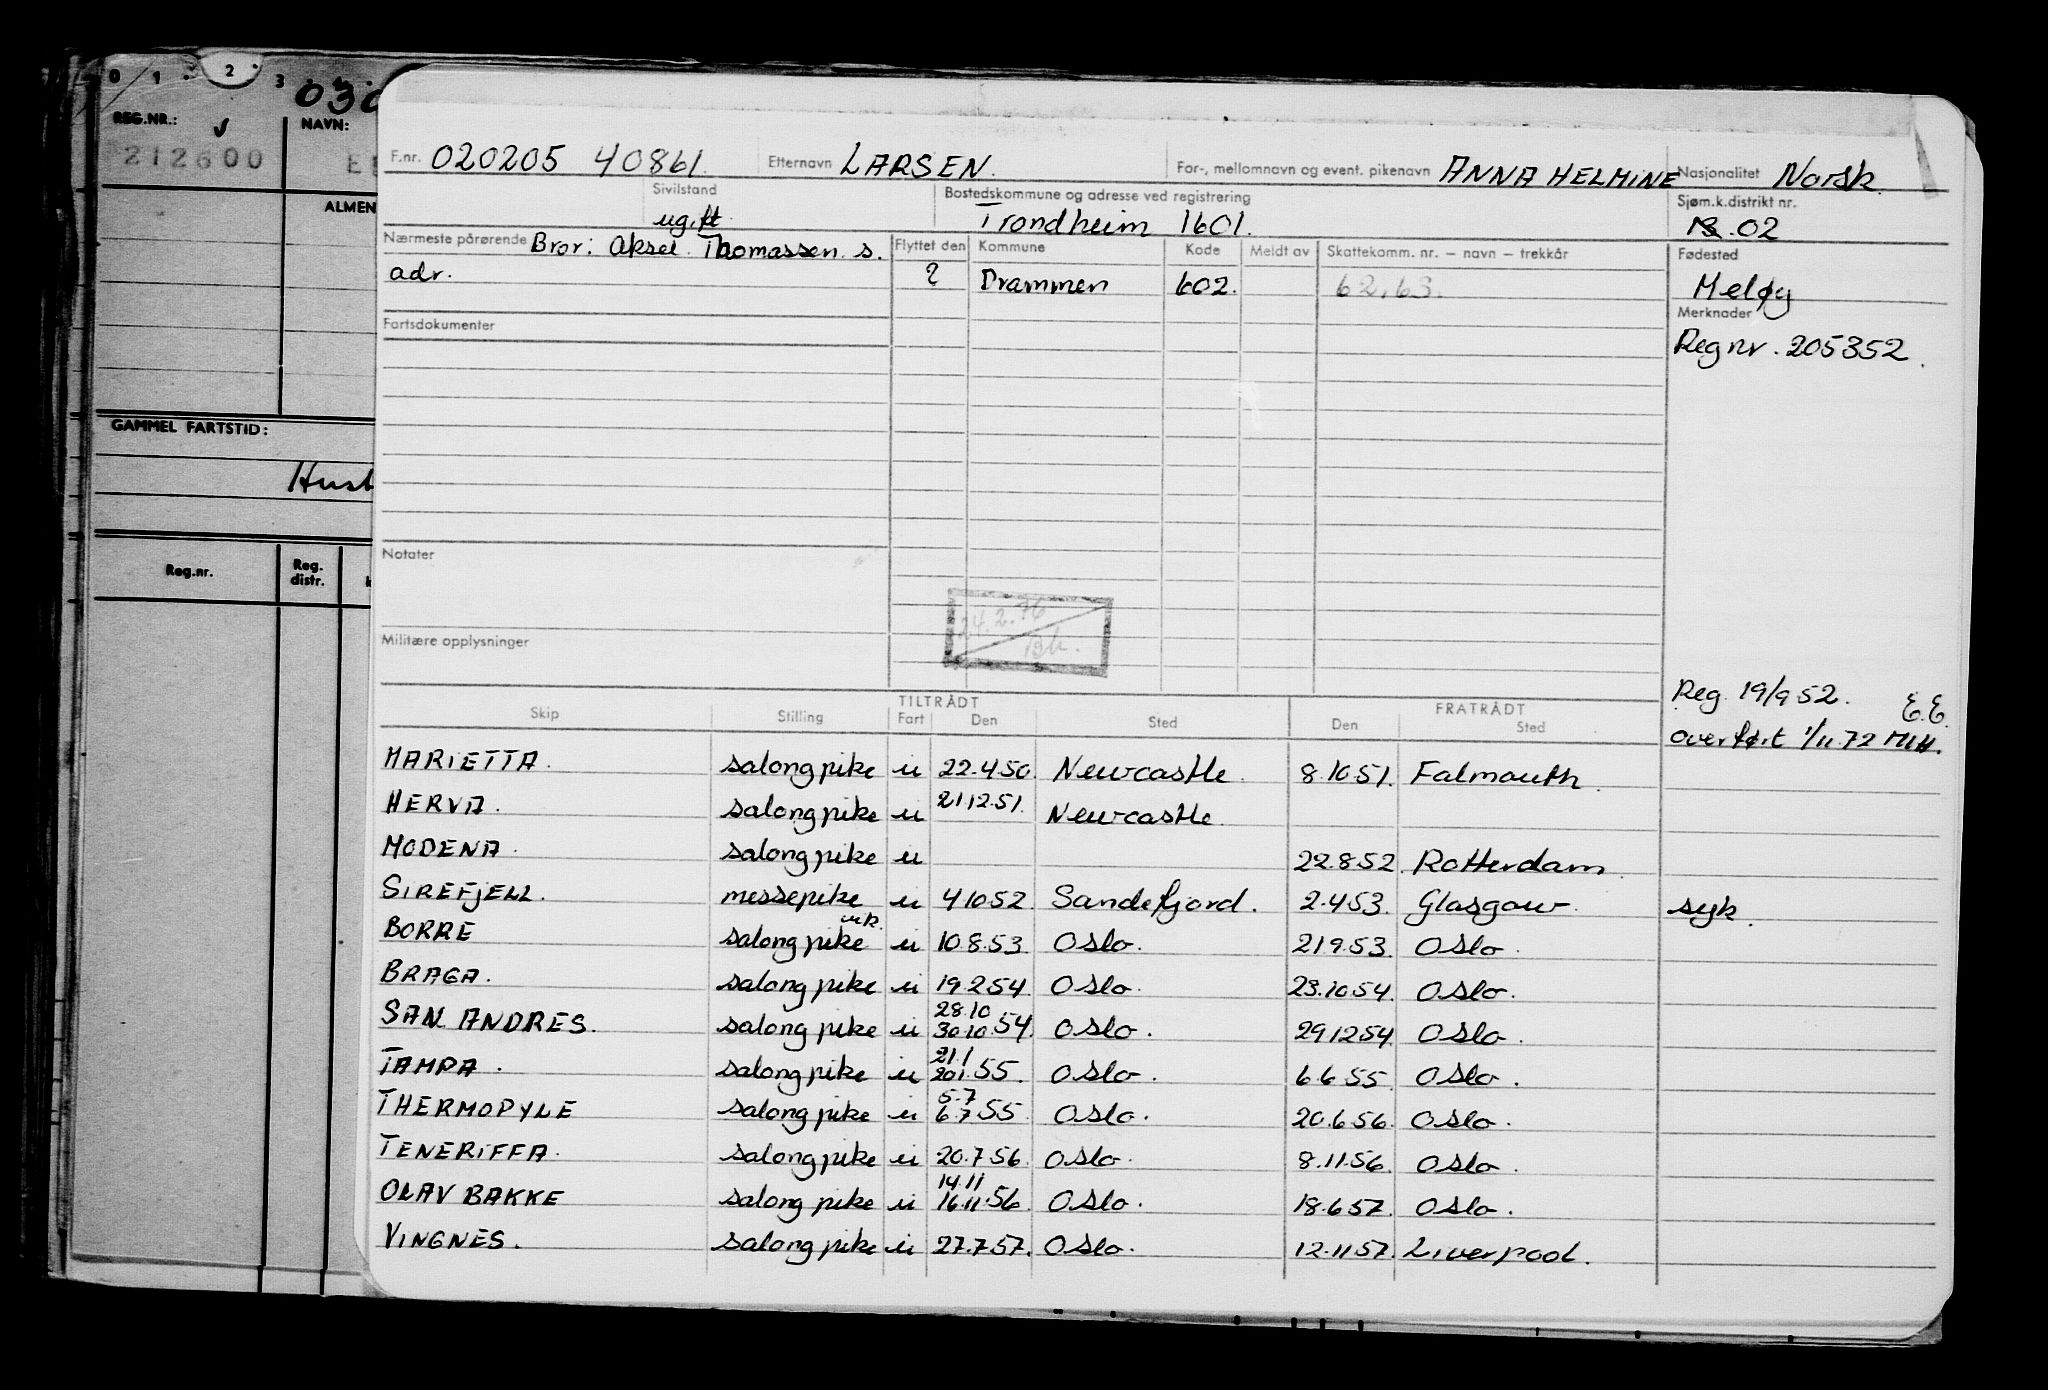 0 1 2 3
030
REG.NR.: NAVN:
212600 E
ALMEN
GAMMEL FARTSTID:
Hust
Reg.nr. Reg. distr. k
F.nr. 020205 40861. Etternavn LARSEN. For-, mellomnavn og event. pikenavn ANNA HELMINE Nasjonalitet Norsk.
Sivilstand Bostedskommune og adresse ved registrering Sjøm.k.distrikt nr.
ugift Trondheim 1601. 02
Nærmeste pårørende Bror: Aksel Thomassen s. Flyttet den Kommune Kode Meldt av Skattekomm. nr. – navn – trekkår Fødested
adr. ? Drammen 602. 62.63. Meløy
Fartsdokumenter Merknader
Reg nr. 205352.
Notater
24.2.76
Bh.
Militære opplysninger
Reg. 19/9 52. E.E.
overført 1/11.72 MIH.
TILTRÅDT FRATRÅDT
Skip Stilling Fart Den Sted Den Sted
MARIETTA. salongpike u 22.4.50 Newcastle. 8.10.51. Falmouth.
HERVA. salongpike u 21.12.51. Newcastle
MODENA. salongpike u 22.8.52 Rotterdam.
SIREFJELL. messepike u 4.10.52. Sandefjord. 2.4.53. Glasgow. syk.
BORRE salongpike vik. u 10.8.53 Oslo. 21.9.53. Oslo.
BRAGA. salongpike u 19.2.54. Oslo. 23.10.54. Oslo.
28.10
SAN ANDRES. salongpike u 30.10.54. Oslo. 29.12.54 Oslo.
21.1
TAMPA. salongpike u 20.1.55. Oslo. 6.6.55. Oslo.
5.7
THERMOPYLE salongpike u 6.7.55. Oslo. 20.6.56. Oslo.
TENERIFFA. salongpike u 20.7.56. Oslo. 8.11.56. Oslo.
14.11
OLAV BAKKE salongpike u 16.11.56 Oslo. 18.6.57. Oslo.
VINGNES. salongpike u 27.7.57. Oslo. 12.11.57. Liverpool.